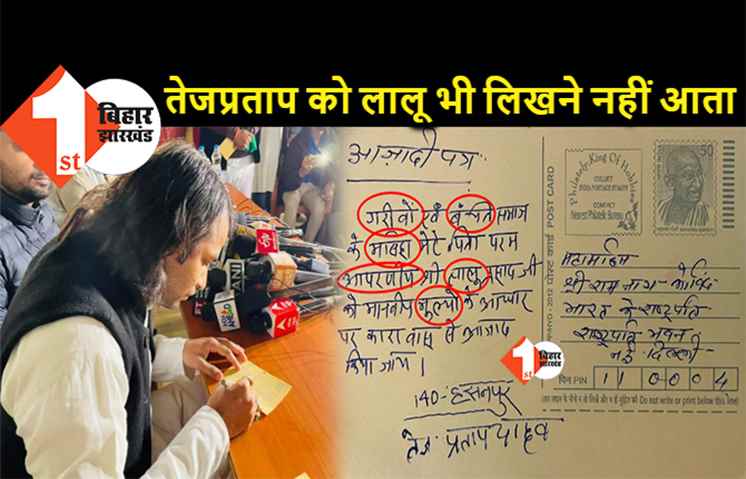 तेजप्रताप को लालू भी लिखने नहीं आता
1st
बिहार
झारखंड
ANI
आज़ादी पत्र
गरीवों एवं बंचित समाज
के मसिहा मेरे पिता परम
आदरणीय श्री लालु प्रसाद जी
को मानवीय मुल्यों के आधार
पर कारावास से आजाद
किया जाय।
140-हसनपुर
तेज प्रताप यादव
POST CARD
पोस्ट कार्ड
2012
Philately King Of Hobbies
COLLECT
INDIA POSTAGE STAMPS
CONTACT
Nearest Philatelic Bureau
50
महामहिम
श्री राम नाथ कोविंद
भारत के राष्ट्रपति
राष्ट्रपति भवन
नई दिल्ली
1st
बिहार
झारखंड
पिन PIN 110004
Do not write or print below this line